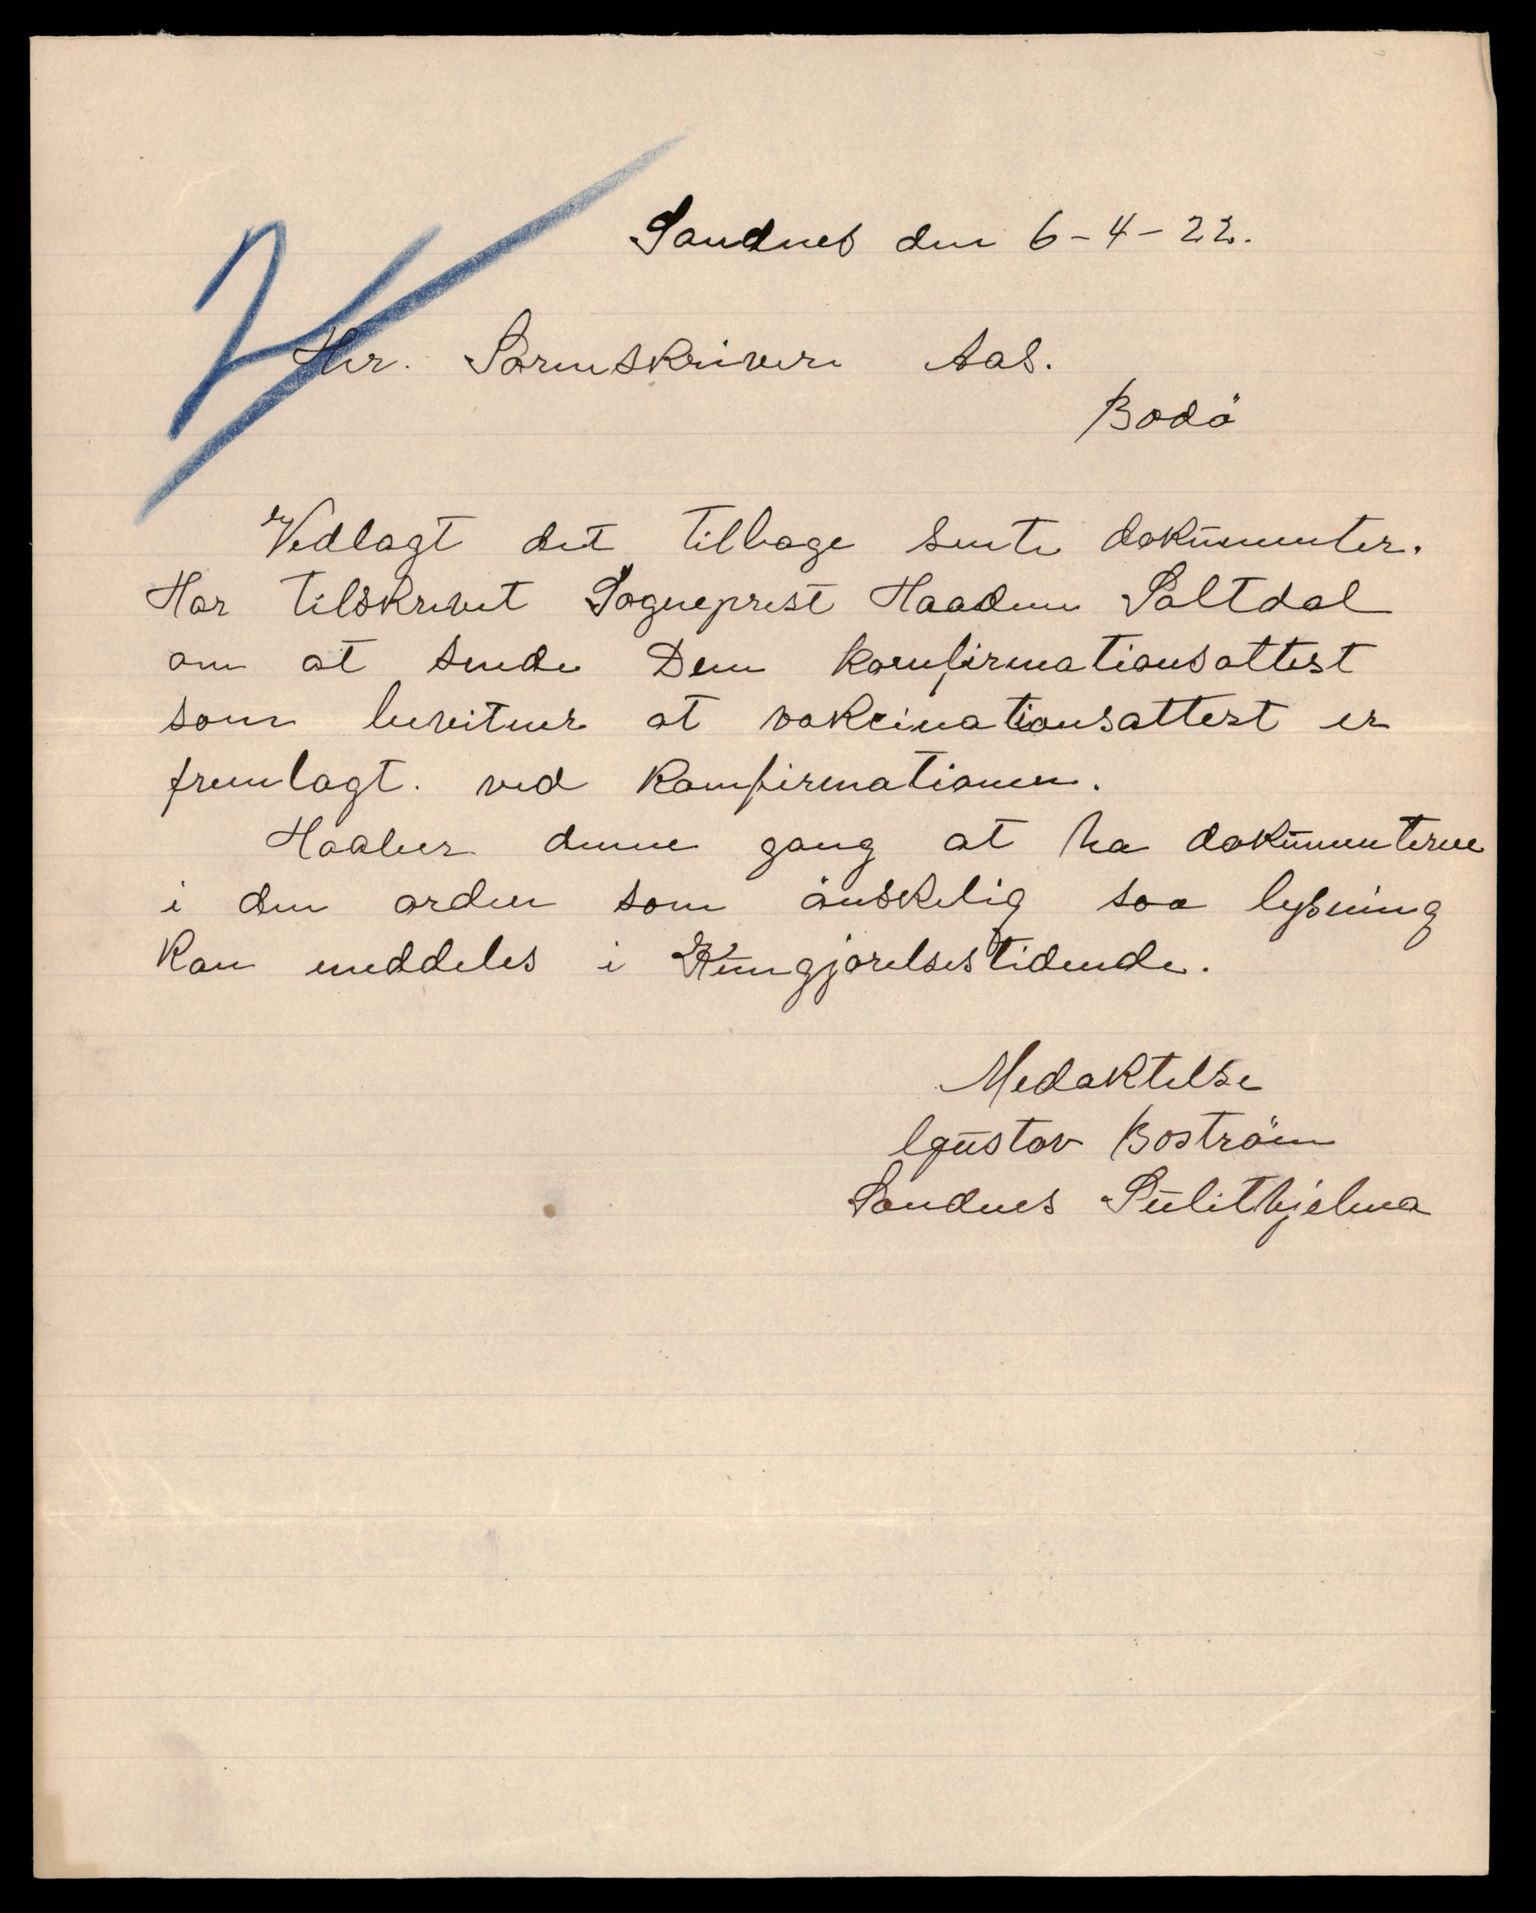 Sandnes den 6-4-22.
Hr. Sorenskriver Aas.
Bodö
Vedlagt det tilbage sente dokumenter.
Har tilskrevet Sogneprest Haadem Saltdal
om at sende Dem konfirmationsattest
som bevitner at vakcinationsattest er
fremlagt. ved Konfirmationen.
Haaber denne gang at ha dokumenterne
i den orden som önskelig saa lysning
kan meddeles i Kungjörelsestidende.
Medaktelse
Gustav Boström
Sandnes Sulithjelma